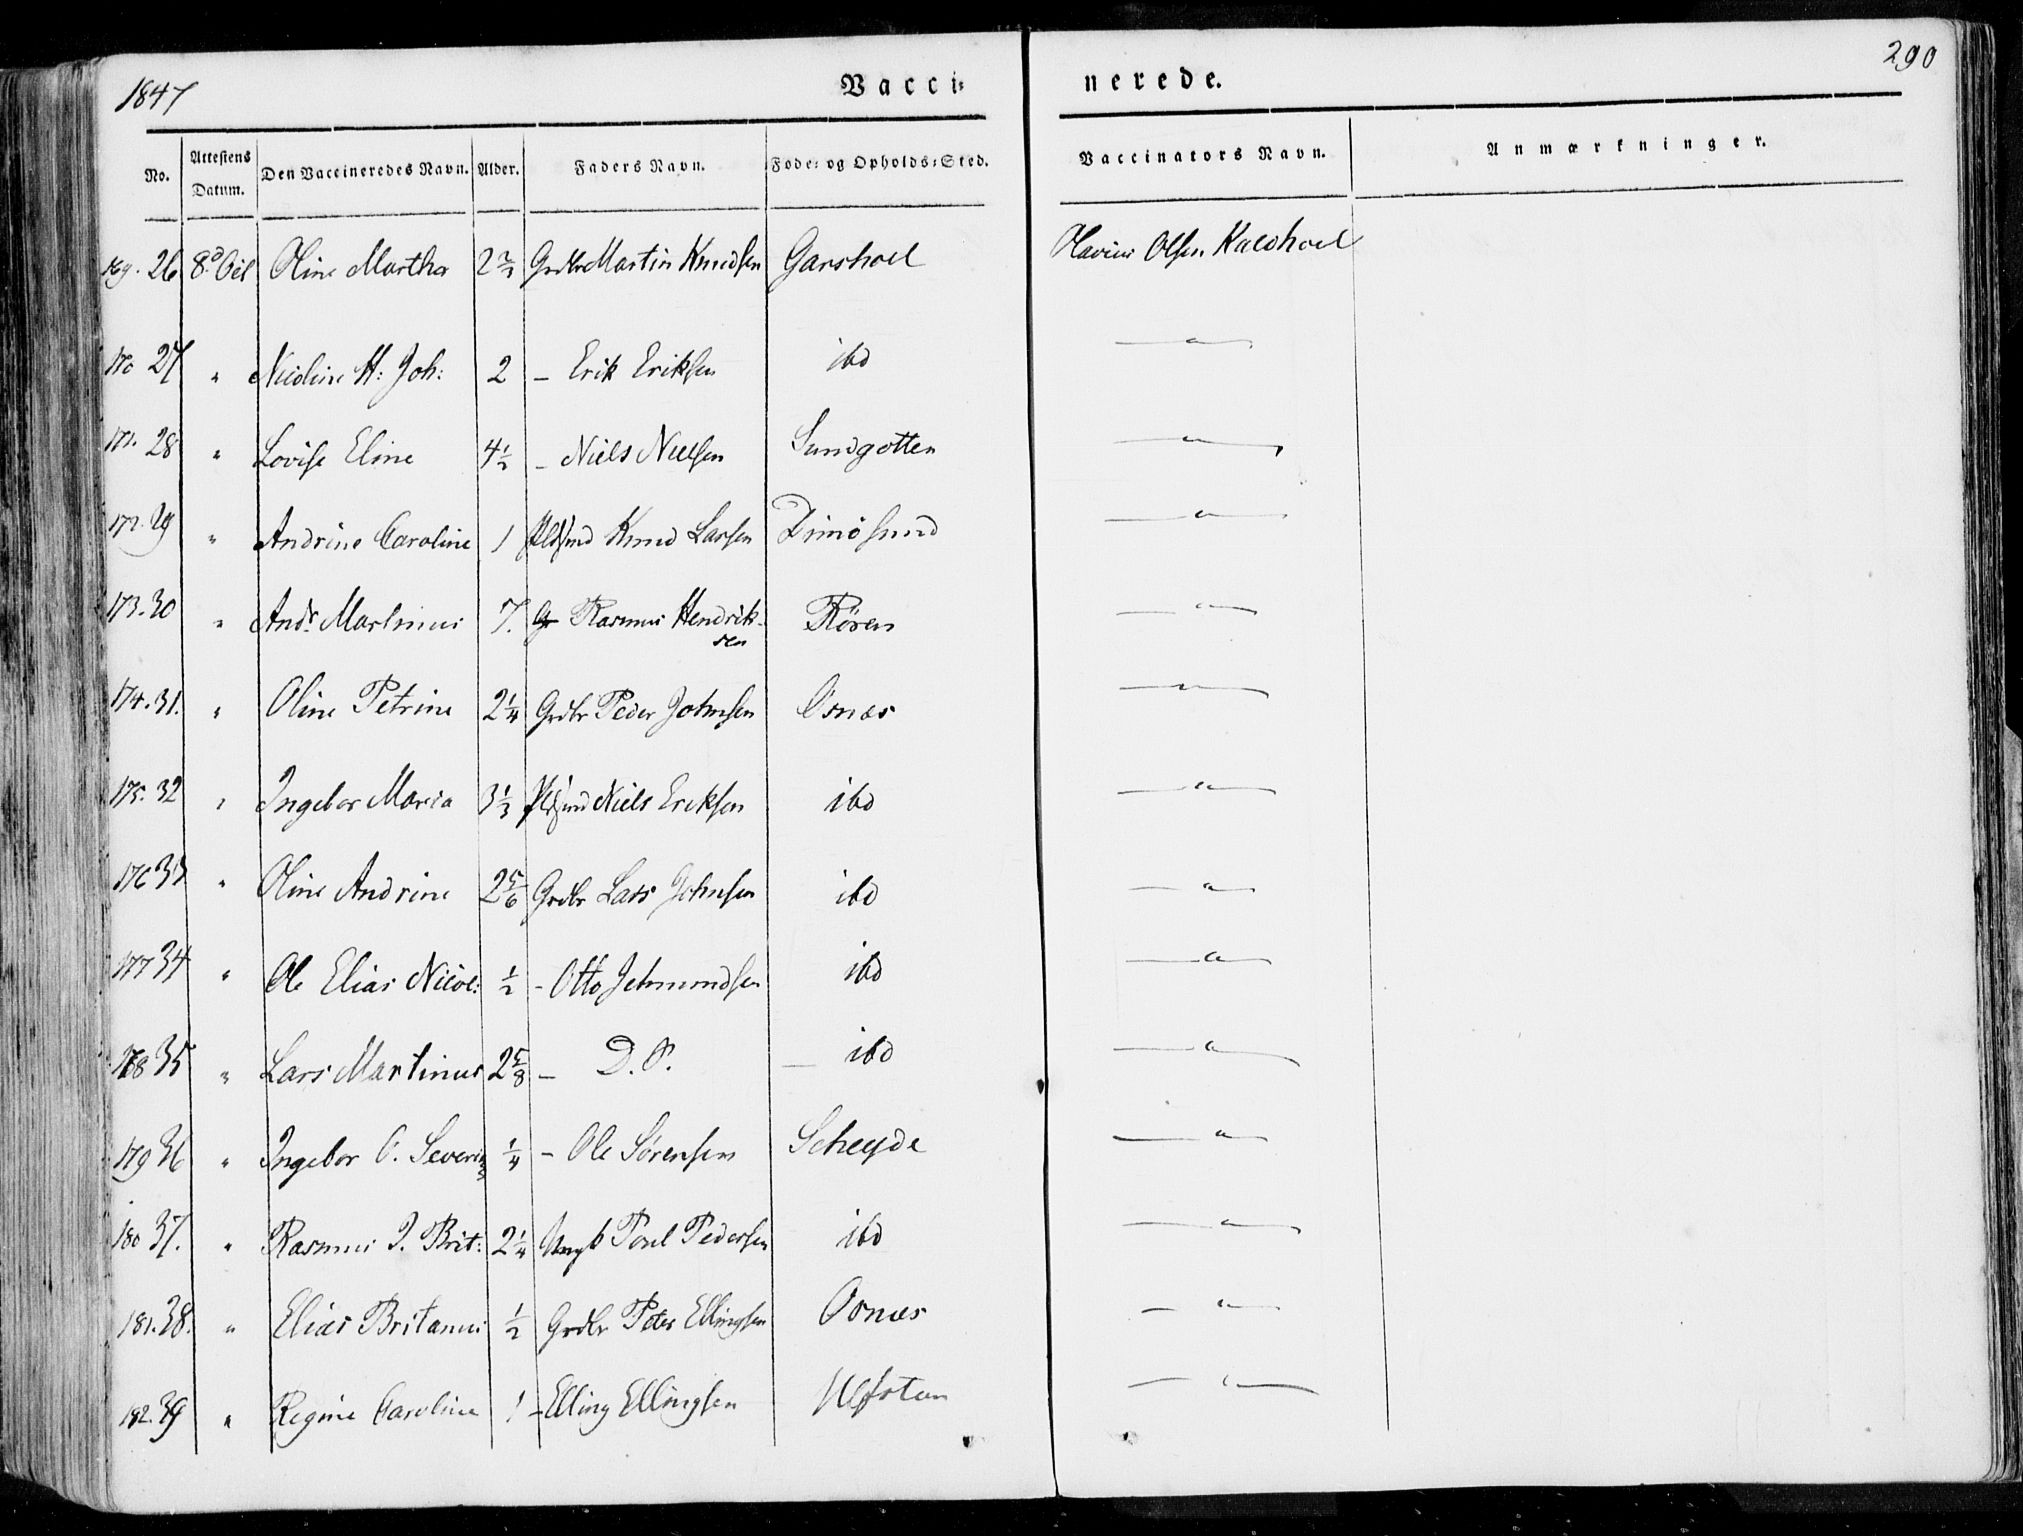 1847 Vacci= nerede. 290
No. Attestens Datum. Den Vaccineredes Navn. Alder. Faders Navn. Føde= og Opholds=Sted. Vaccinators Navn. Anmærkninger.
169. 26 8d Oct Oline Martha 2 2/3 Grdbr Martin Knudsen Garshoel Olavius Olsen Kaldhoel
170 27 " Nicoline H: Joh: 2 – Erik Eriksen ibd —"—
171. 28 " Lovise Eline 4 1/2 – Niels Nielsen Sundgotten —"—
172. 29 " Andrine Caroline 1 Pldsmd Knud Larsen Dimøsund —"—
173. 30 " Andr. Martinus 7. Gr Rasmus Hendrik-
sen Røren —"—
174. 31. " Oline Petrine 2 1/4 Grdbr Peder Johnsen Osnæs —"—
175. 32 " Ingebor Maria 3 1/3 Pldsmd Niels Eriksen ibd —"—
176 33 " Oline Andrine 2 5/6 Grdbr Lars Johnsen ibd —"—
177 34 " Ole Elias Nicol: 1/2 – Otto Jetmundsen ibd —"—
178 35 " Lars Martinus 2 5/8 – D. S. – ibd —"—
179 36 " Ingebor O. Severine 1/4 – Ole Sørensen Scheyde —"—
180 37. " Rasmus I. Brit: 2 1/4 Ungk Poul Pedersen ibd —"—
181. 38. " Elias Britanus 1/2 Grdbr Peter Ellingsen Osnæs —"—
182. 39 " Regine Caroline 1 – Elling Ellingsen Ulfsteen —"—